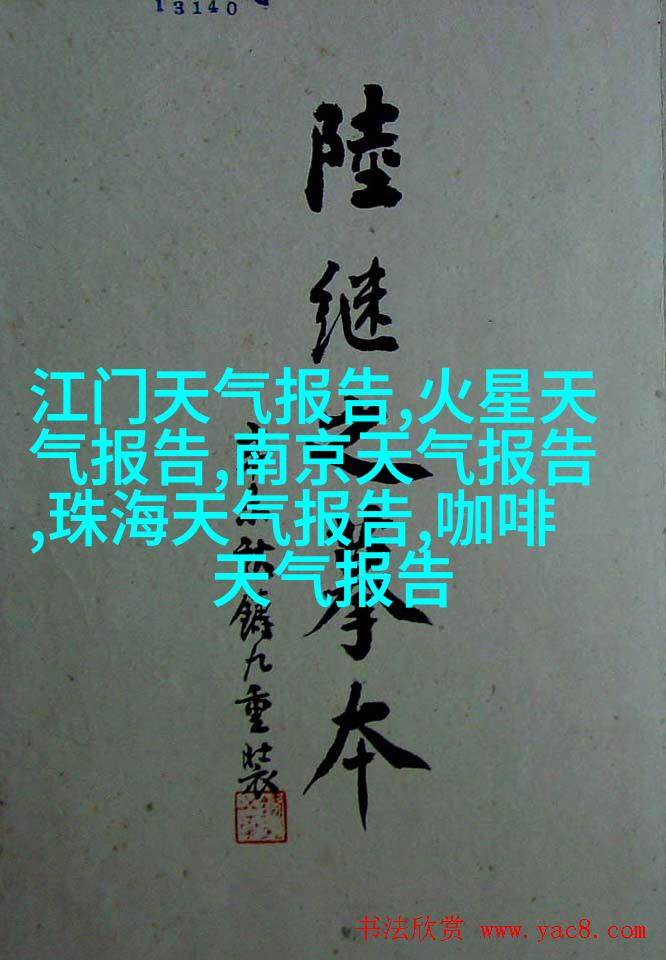 13140
陸继之摹本
江门天气报告,火星天
气报告,南京天气报告
,珠海天气报告,咖啡
天气报告
九重裝
书法欣赏 www.yac8.com